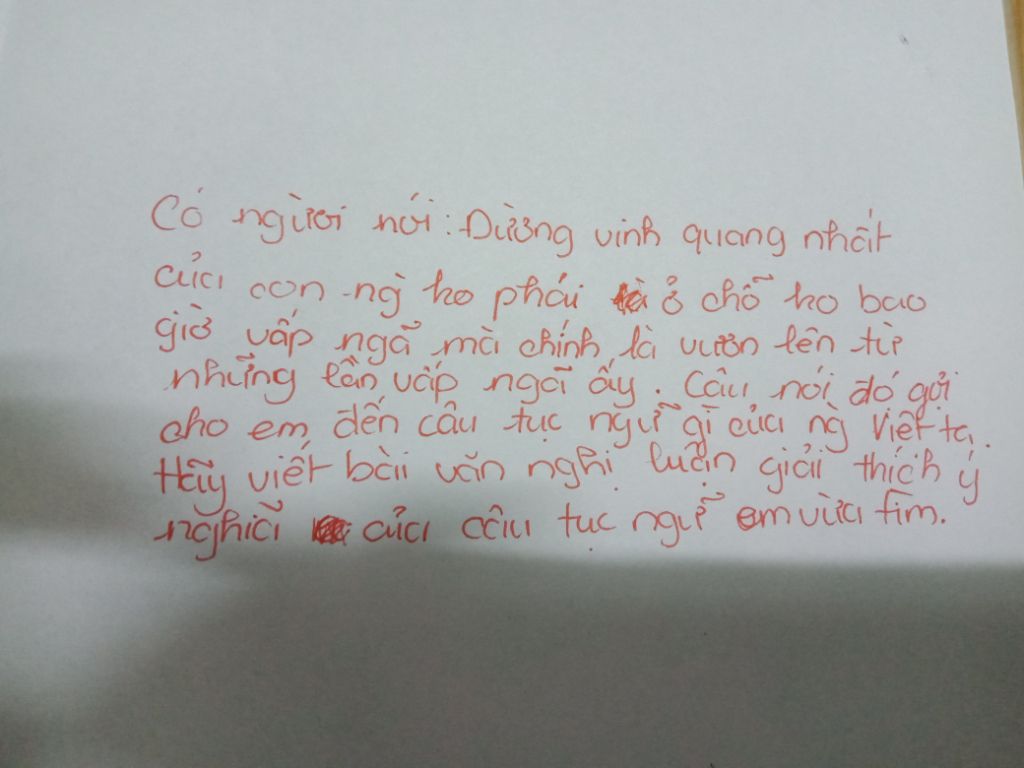 Có người nói: Đường vinh quang nhất
của con ng ko phải ở chỗ ko bao
giờ vấp ngã mà chính là vươn lên từ
những lần vấp ngã ấy. Câu nói đó gợi
cho em đến câu tục ngữ gì của ng Việt ta.
Hãy viết bài văn nghị luận giải thích ý
nghĩa của câu tục ngữ em vừa tìm.